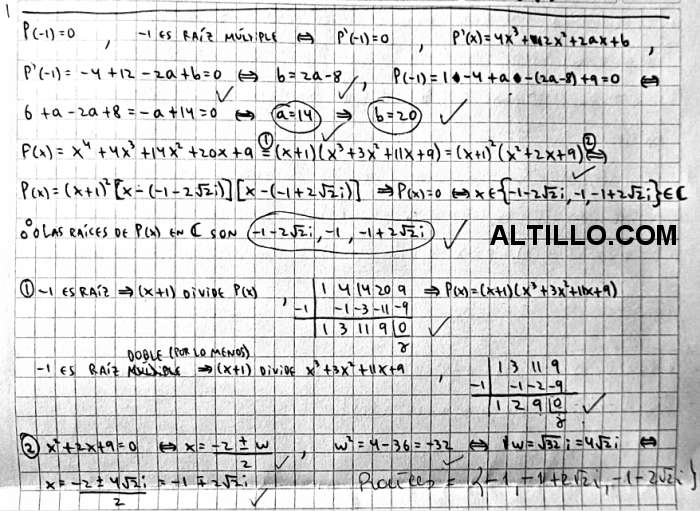 1
P(-1)=0 , -1 ES RAÍZ MÚLTIPLE ⇔ P'(-1)=0 , P'(x)=4x³+12x²+2ax+b ,
P'(-1)=-4+12-2a+b=0 ⇔ b=2a-8 , P(-1)=1-4+a-(2a-8)+9=0 ⇔
6+a-2a+8=-a+14=0 ⇔ a=14 ⇒ b=20
P(x)=x⁴+4x³+14x²+20x+9 ①= (x+1)(x³+3x²+11x+9)=(x+1)²(x²+2x+9) ②⇔
P(x)=(x+1)²[x-(-1-2√2i)][x-(-1+2√2i)] ⇒P(x)=0 ⇔x∈{-1-2√2i,-1,-1+2√2i}∈ℂ
∴ LAS RAÍCES DE P(x) EN ℂ SON -1-2√2i, -1, -1+2√2i
ALTILLO.COM
① -1 ES RAÍZ ⇒ (x+1) DIVIDE P(x) , 1 4 14 20 9 ⇒ P(x)=(x+1)(x³+3x²+11x+9)
-1 -1 -3 -11 -9
1 3 11 9 0
r
DOBLE (POR LO MENOS)
-1 ES RAÍZ MÚLTIPLE ⇒ (x+1) DIVIDE x³+3x²+11x+9 , 1 3 11 9
-1 -1 -2 -9
1 2 9 0
r
② x²+2x+9=0 ⇔ x=-2±w/2 , w²=4-36=-32 ⇔ w=√32i=4√2i ⇔
x=-2±4√2i/2=-1∓2√2i Raíces = {-1, -1+2√2i, -1-2√2i}